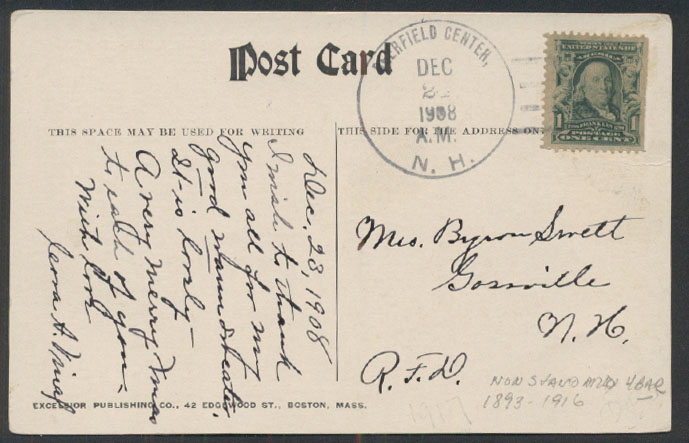 Post Card
THIS SPACE MAY BE USED FOR WRITING
THIS SIDE FOR THE ADDRESS ON
ERFIELD CENTER,
DEC
1908
A.M.
N. H.
UNITED STATES OF
AMERICA
FRANKLIN
1 POSTAGE 1
ONE CENT
Dec. 23, 1908
I wish to thank
you all for my
good
It is lovely
A very merry Xmas
to each of you -
With love
Mrs. Byron Swett
Gossville
N. H.
R. F. D.
NON STANDARD 4 BAR
1893-1916
EXCELSIOR PUBLISHING CO., 42 EDGEWOOD ST., BOSTON, MASS.